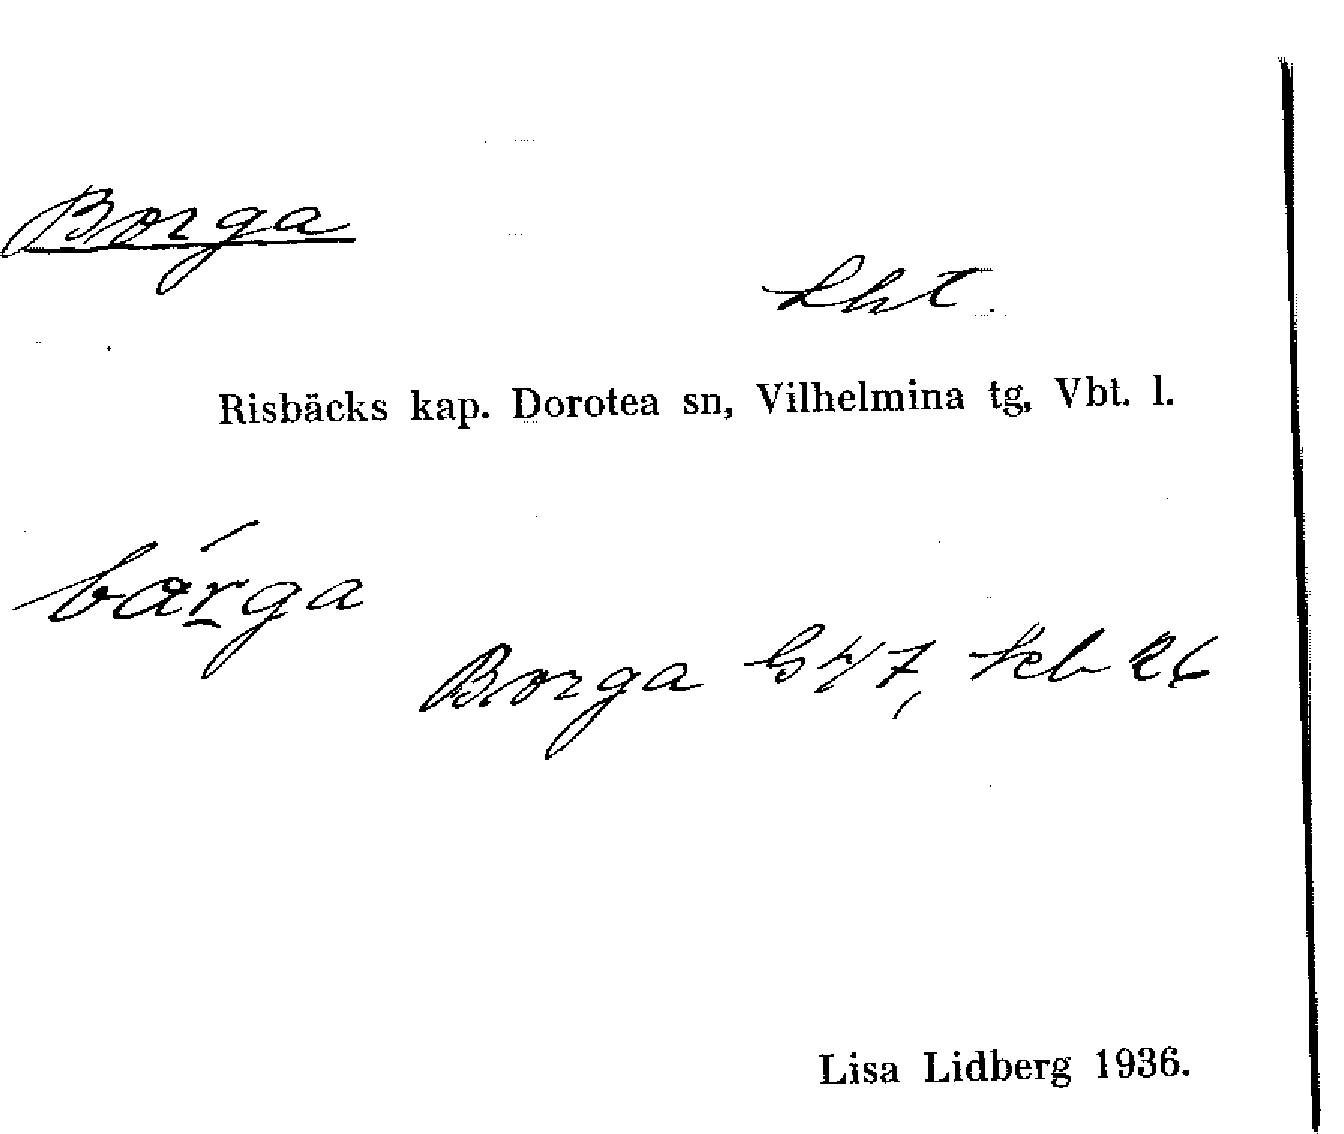 Borga
Lht.
Risbäcks kap. Dorotea sn, Vilhelmina tg, Vbt. l.
bárga
Borga
Lisa Lidberg 1936.